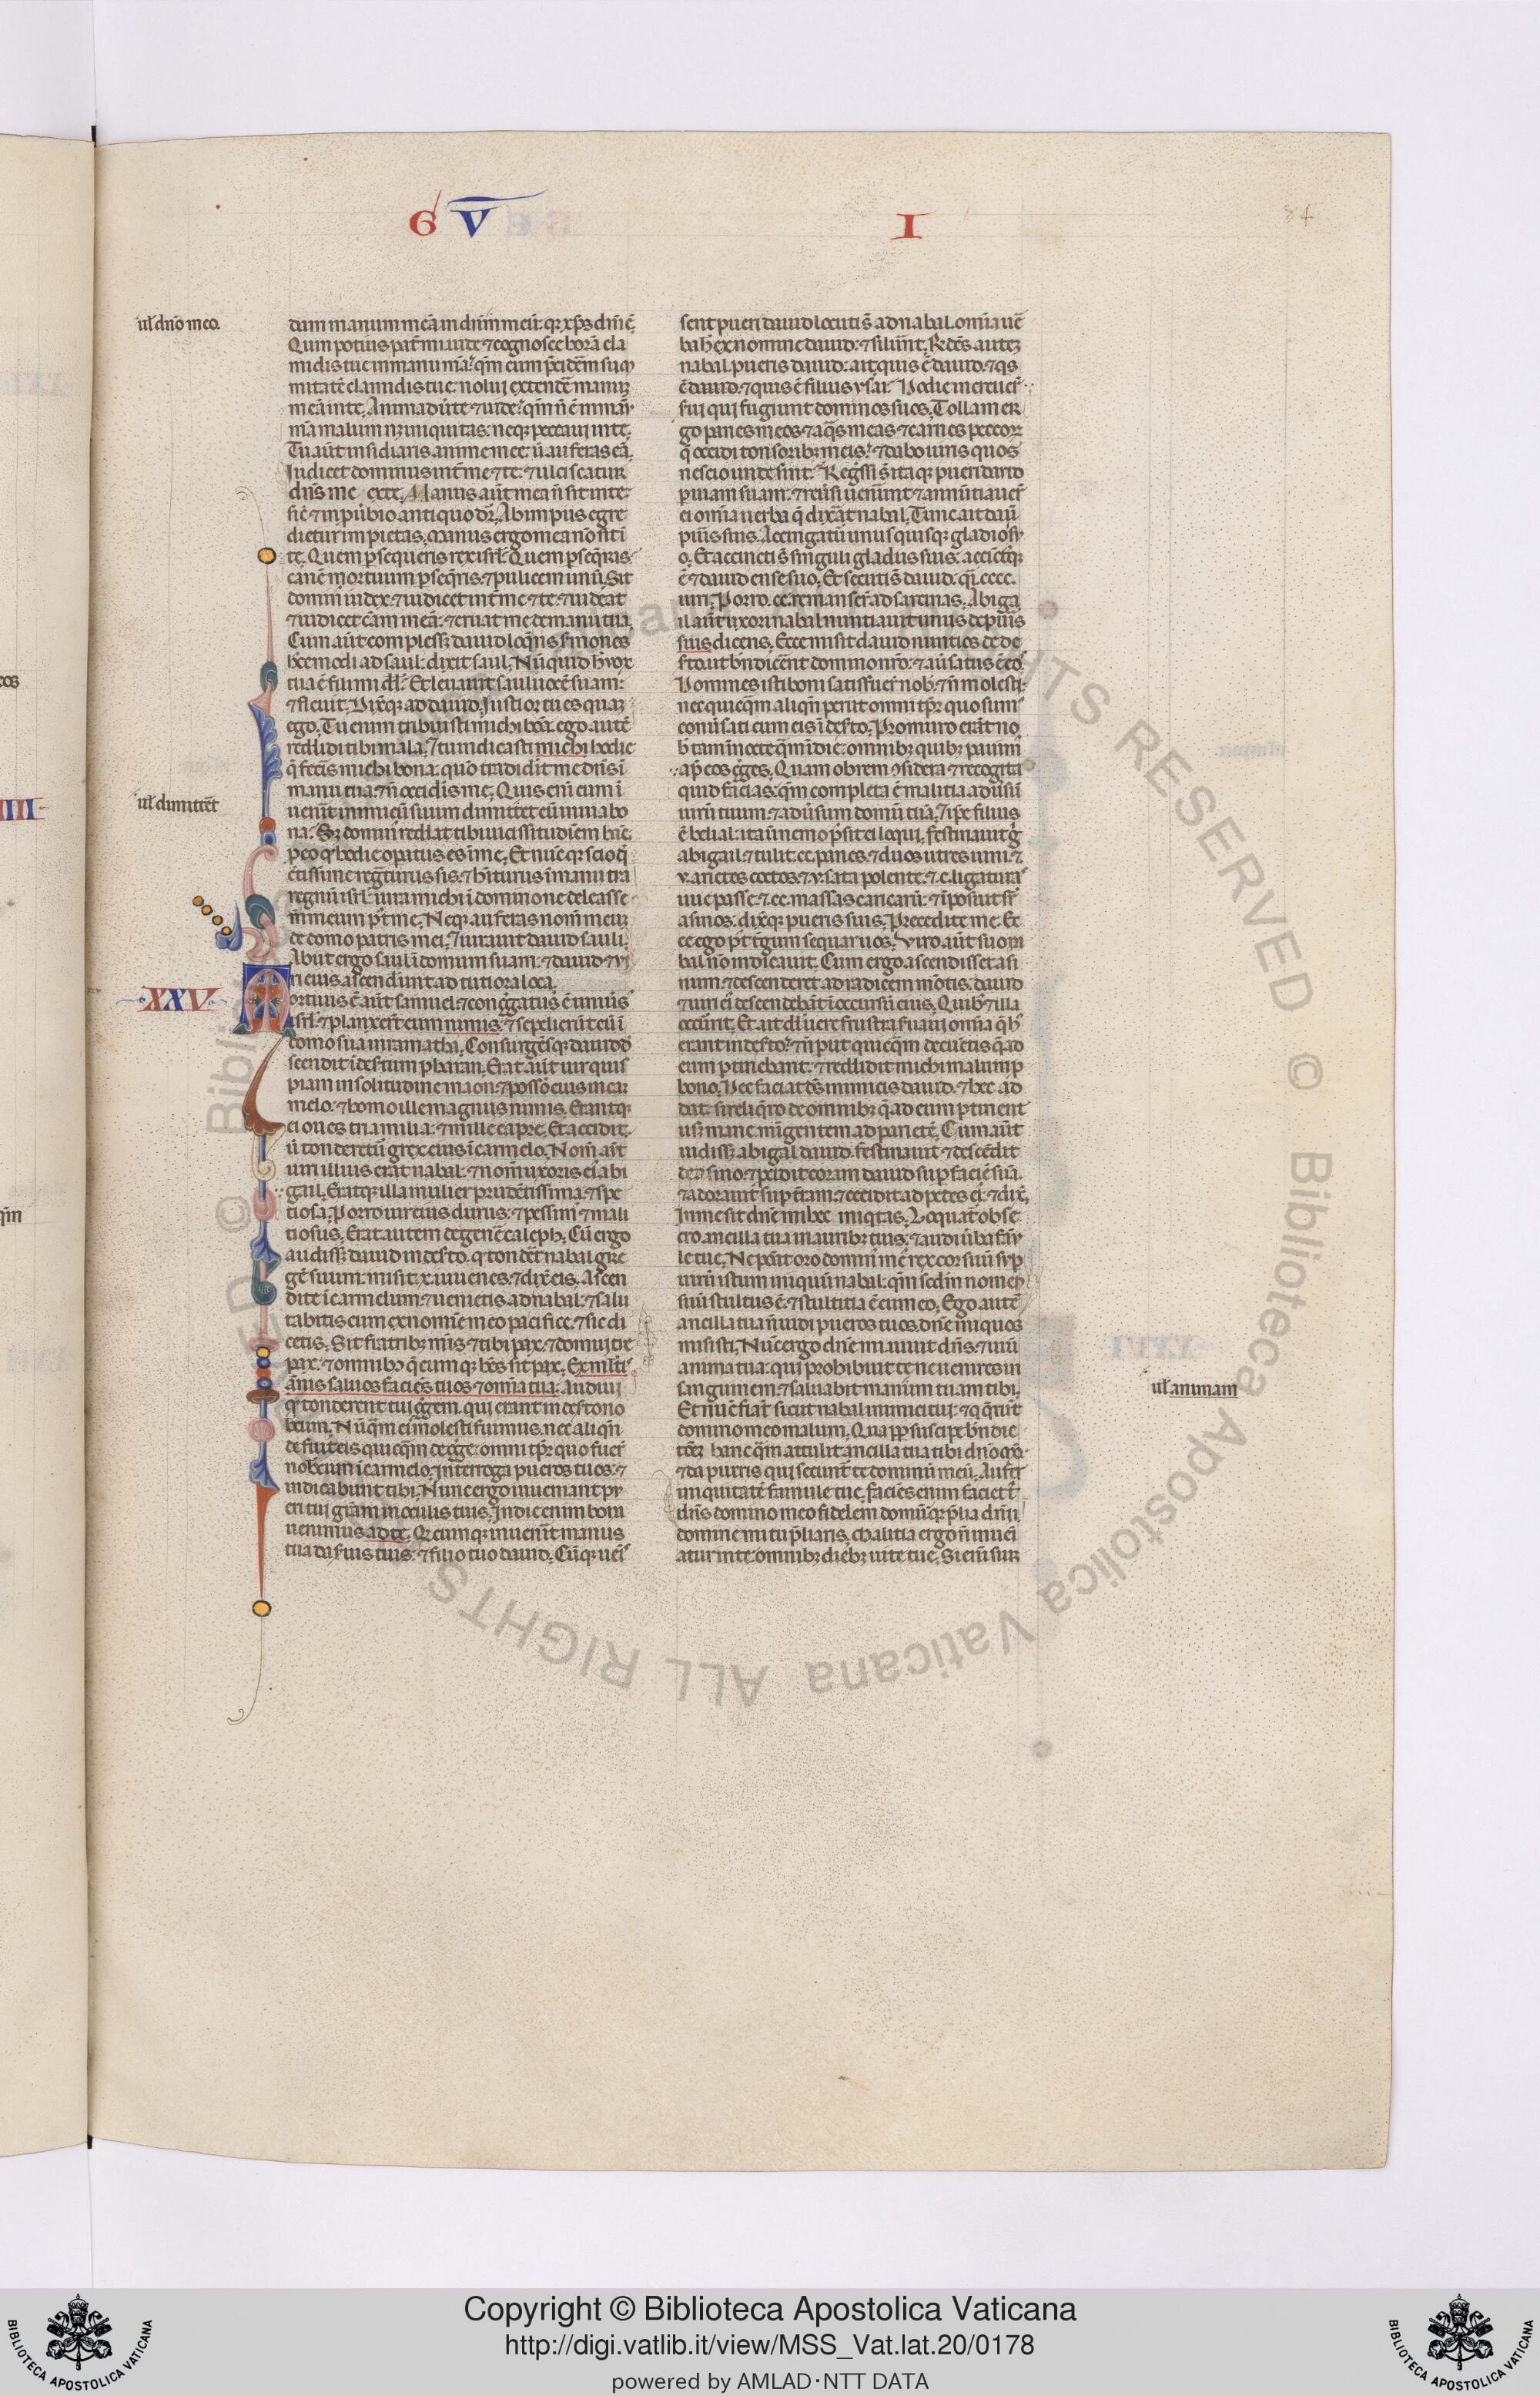 G V I
84
ul' dn̄o meo.
dam manum meā in dn̄m meū: qr xp̄s dn̄i ē.
Quin potius pat̄ mi uide ⁊ cognosce horā cla
midis tue in manu mā: qm̄ cum p̄cidēm sūm̄
mitatē clamidis tue: nolui extendēe manū
meā in te. Animaduˀte ⁊ uide: qm̄ n̄ ē in manˀ
mā malum nꝫ iniquitas: neqꝫ peccaui in te.
Tu aūt insidiaris anime mee: ū auferas eā.
Iudicet dominus int̄ me ⁊ te: ⁊ ulciscatur
dn̄s me ex te. Manus aūt mea n̄ sit in te:
sic̄ ⁊ in pˀubio antiquo dr̄. Ab impiis egre
dietur impietas. Manus ergo mea nō sit ī
te. Quem p̄sequeris rex isrl̄? Quem p̄seq̄ris
canē mortuum p̄seq̄ris: ⁊ pulicem unū. Sit
domin̄ iudex: ⁊ iudicet int̄ me ⁊ te: ⁊ uideat
⁊ iudicet cām meā: ⁊ eruat me de manu tua.
Cum aūt complessꝫ dauid loq̄ns sˀmones
hˀcemodi ad saul: dixit saul. Nū quid hˀ uox
tua ē fili mi dd̄? Et leuauit saul uocē suam:
⁊ fleuit. Dixˀqꝫ ad dauid. Iustior tu es quaꝫ
ego. Tu enim tribuisti michi bōa: ego autē
reddidi tibi mala. ⁊ tu indicasti michi hodie
q̄ fecˀis michi bona: quō tradidˀit me dn̄s ī
manu tua: ⁊ n̄ occidˀis me. Quis eni cum ī
ul' dimittet
uenˀit inimicū suum dimittet eū in uia bo
na? Sꝫ domin̄ reddat tibi uicissitudīem hāc
p̄ eo qꝫ hodie opatus es in me. Et nūc qꝛ scio qꝫ
c̄tissime regnaturus sis: ⁊ hˀiturus ī manu tua
regnū isrl̄: iura michi ī domino ne deleas se
m̄ meum p̄t me. Neqꝫ auferas nom̄ meuꝫ
de domo patris mei. ⁊ iurauit dauid sauli.
Abiit ergo saul ī domum suam: ⁊ dauid ⁊ ui
ri eius ascendˀunt ad tutiora loca.
XXV
Mortuus ē aūt samuel: ⁊ congˀgatus ē uniūs
isrl̄: ⁊ planxerˀt eum nimis: ⁊ sepelierūt eū ī
domo sua in ramatha. Consurgēsqꝫ dauid d̄
scendit ī des̄tum pharan. Erat aūt uir quis
piam in solitudine maon: ⁊ possˀio eius in car
melo: ⁊ homo ille magnus nimis. Erantqꝫ
ei oues tria milia: ⁊ mille capre. Et accidit
ū tonderetˀ grex eius ī carmelo. Nom̄ aūt
uiri illius erat nabal: ⁊ nom̄ uxoris eiˀ abi
gail. Eratqꝫ illa mulier prudētissima: ⁊ spe
tiosa. Porro uir eius durus: ⁊ pessimˀ ⁊ mali
tiosus. Erat autem de genˀe caleph. Cū ergo
audissꝫ dauid in desˀto qꝫ tondeˀt nabal gre
gē suum: misit x. iuuenes: ⁊ dixˀ eis. Ascen
dite ī carmelum: ⁊ uenietis ad nabal: ⁊ salu
tabitis eum ex nomīe meo pacifice. ⁊ sic di
cetis. Sit frātribꝫ mīs ⁊ tibi pax: ⁊ domui tue
pax: ⁊ omnibꝫ q̄cumqꝫ hēs sit pax. Ex mlt̄is
ānis saluos faciēs tuos ⁊ omīa tua. Audiui
qꝫ tonderent tui gˀgem. qui erant in desˀto no
bcum. Nūqm̄ eiˀ molesti fuimus. nec aliqn̄
defuit eis quicqm̄ de gˀge: omni tp̄r quo fuerˀ
nobcum ī carmelo. Interroga pueros tuos: ⁊
indicabunt tibi. Nunc ergo inueniant pu
eri tui grām in oculis tuis. In die enim bona
uenimus ad te. Qꝛcumqꝫ inuenˀit manus
tua da sˀuis tuis: ⁊ filio tuo dauid. Cūqꝫ uenisˀ
sent pueri dauid locuti s̄ ad nabal omīa uˀ
ba hˀ ex nomine dauid: ⁊ siluˀunt. Rn̄dēs autēꝫ
nabal pueris dauid: ait. quis ē dauid: ⁊ qˀs
ē dauid: ⁊ quis ē filius ysai? Hodie increuerˀ
sˀui qui fugiunt dominos suos. Tollam er
go panes meos ⁊ aqˀs meas ⁊ carnes pecorꝫ
q̄ occidi tonsoribꝫ meis: ⁊ dabo uiris quos
nescio unde sint? Regˀssi s̄ itaqꝫ pueri dauid
p uiam suam: ⁊ reuˀsi uenˀunt ⁊ annūtiauerˀ
ei omīa uerba q̄ dixˀat nabal. Tunc ait dauid
puˀis suis. Accingatˀ unusquisqꝫ gladio su
o. Et accincti s̄ singuli gladiis suis: accictˀqꝫ
ē ⁊ dauid ense suo. Et secuti s̄ dauid: qˀi .cccc.
uiri. Porro .cc. remanserˀ ad sarcinas. Abiga
il aūt uxori nabal nuntiauit unus de puˀis
suis dicens. Ecce misit dauid nuntios de de
sˀto. ut bn̄dicˀent domino nrō: ⁊ auˀsatus ē eos.
Homines isti boni satis fuerˀ nobˀ: ⁊ n̄ molesti:
nec quicqm̄ aliqn̄ periit omni tp̄r quo sumˀ
conuˀsati cum eis ī desˀto. Pro muro erāt no
bˀ tam in nocte qm̄ ī die: omnibꝫ quibꝫ pauimˀ
ap̄ eos gˀges. Quam obrem 9sidera ⁊ recogita
quid facias: qm̄ completa ē malitia aduˀsū
uirū tuum: ⁊ aduˀsum domū tuā. ⁊ ip̄e filius
ē belial: ita ū nemo p̄sit ei loqui. Festinauit gˀ
abigail: ⁊ tulit .cc. panes: ⁊ duos utres uini: ⁊
.v. arietes coctos: ⁊ .v. sata polente: ⁊ .c. ligaturas
uue passe: ⁊ .cc. massas caricarū: ⁊ īposuit sˀ
asinos. dixˀqꝫ pueris suis. Precedite me. Ec
ce ego p̄t tˀgum sequar uos. Viro aūt suo na
bal nō indicauit. Cum ergo ascendisset asi
num: ⁊ descenderet ad radicem mōtis. dauid
⁊ uiri eiˀ descendebāt ī occursū eius. Quibꝫ ⁊ illa
occurˀit. Et ait dd̄. Uere frustra sˀuaui omīa q̄ hˀ
erant in desˀto: ⁊ n̄ piit quicqm̄ de cūctis q̄ ad
eum p̄tinebant: ⁊ reddidit michi malum p
bono. Hec faciat ds̄ inimicis dauid: ⁊ hec ad
dat: si reliqˀro de omnibꝫ q̄ ad eum p̄tinent
usqꝫ mane mīgentem ad parietē. Cum aūt
uidissꝫ abigail dauid. festinauit ⁊ descēdit
de asino: ⁊ p̄cidit coram dauid sup faciē suā.
⁊ adorauit sup tˀram: ⁊ cecidit ad pedes eiˀ: ⁊ dixˀ.
In me sit dn̄e mi hec iniqˀtas. Loquatˀ obse
cro ancilla tua in auribꝫ tuis: ⁊ audi uˀba famˀ
le tue. Ne ponˀat oro domin̄ mˀ rex cor suū sup
uirū istum iniquū nabal: qm̄ sedm̄ nomen
suū stultus ē: ⁊ stultitia ē cum eo. Ego autē
ancilla tua n̄ uidi pueros tuos. dn̄e mi quos
misisti. Nūc ergo dn̄e mi uiuit dn̄s: ⁊ uiuˀ
anima tua: qui prohibuit te ne uenires in
ul' animam
sanguinem: ⁊ saluabit manum tuam tibi.
Et nūc fiāt sicut nabal inimici tui: ⁊ q̄ q̄runt
domino meo malum. Quapp̄ suscipe bn̄dic
tōeꝫ hanc qm̄ attulit ancilla tua tibi dn̄o meo:
⁊ da pueris qui secunt̄ te dominū meū. Auferˀ
iniquitatē famule tue. faciēs enim faciet tˀ
dn̄s domino meo fidelem domū: qꝛ p̄lia dn̄i
domine mi tu p̄liaris. Malitia ergo n̄ inueni
atur in te omnibꝫ diebꝫ uite tue. Si eni sur
Copyright © Biblioteca Apostolica Vaticana
http://digi.vatlib.it/view/MSS_Vat.lat.20/0178
powered by AMLAD·NTT DATA